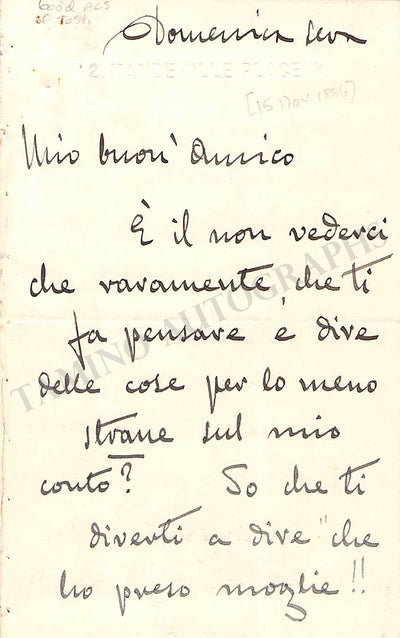 Good ALS
of Tosti
Domenica sera
12 MANDEVILLE PLACE. W.
[15 Nov. 1886]
Mio buon' Amico
È il non vederci
che raramente, che ti
fa pensare e dire
delle cose per lo meno
strane sul mio
conto? So che ti
diverti a dire "che
ho preso moglie!!
TAMINO AUTOGRAPHS